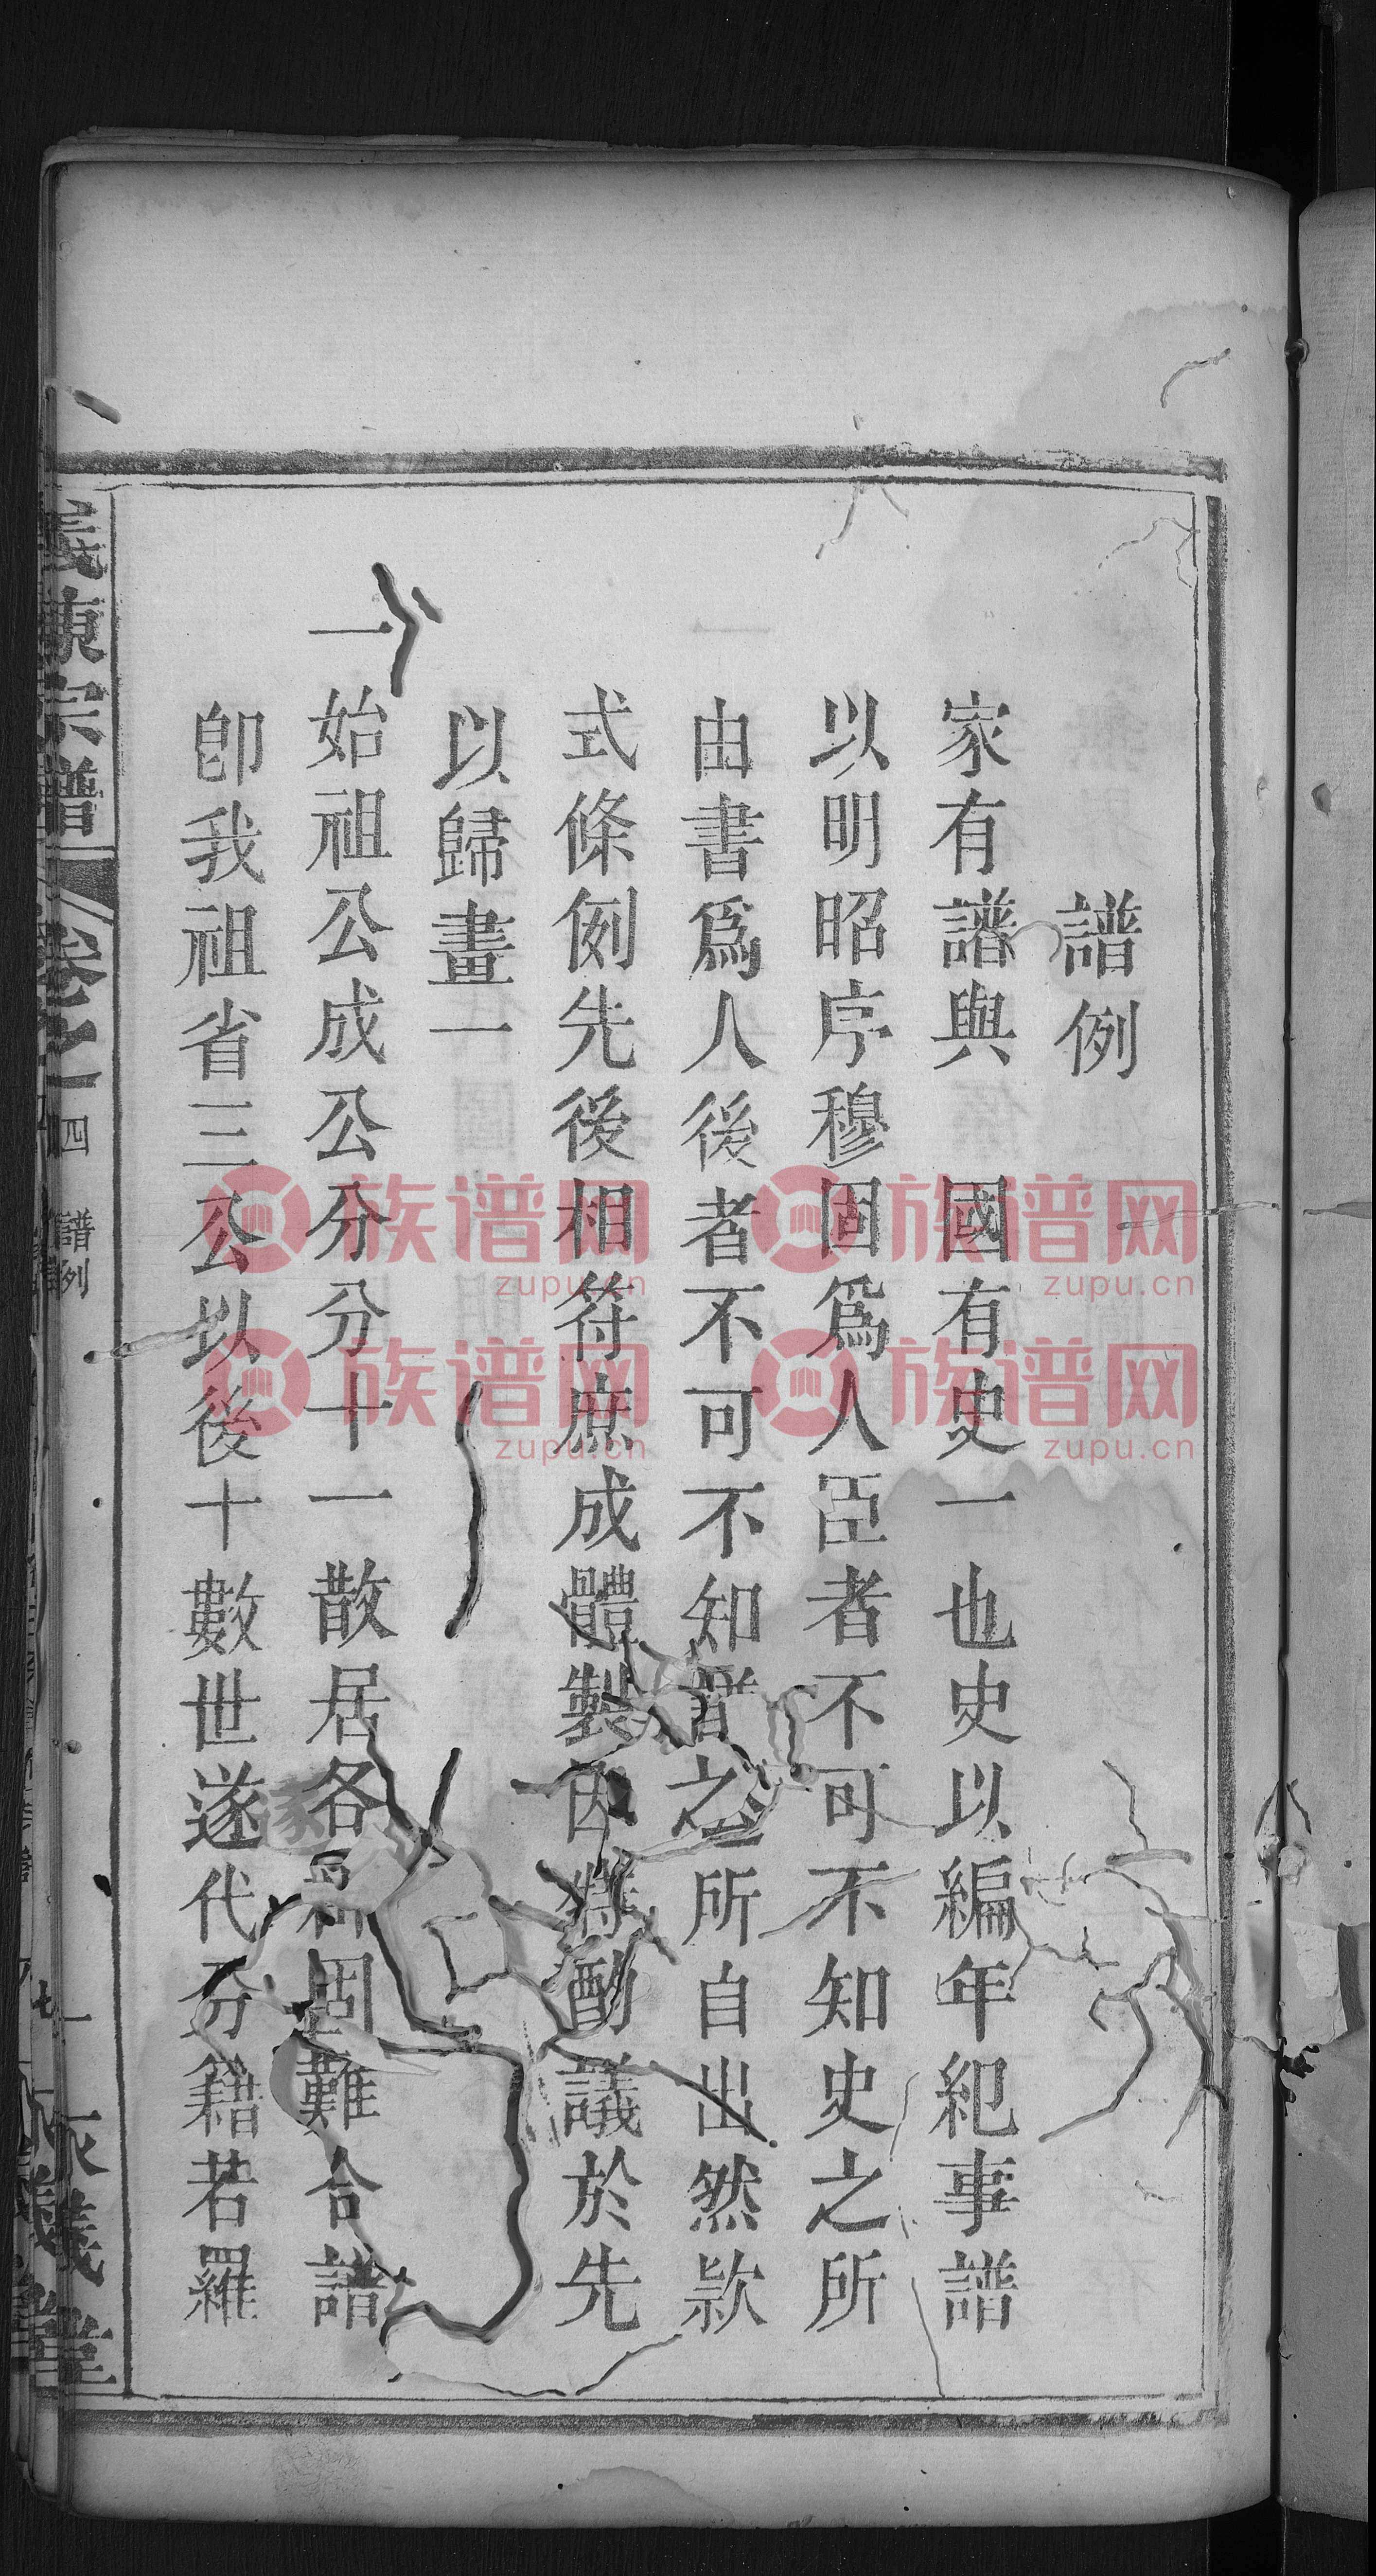 譜例
家有譜與 國有史一也史以編年紀事譜
以明昭序穆固爲人臣者不可不知史之所
由書爲人後者不可不知譜之所自出然款
式條例先後相符庶成體製因特酌議於先
以歸畫一
一始祖公成公分分十一散居各 難合譜
卽我祖省三公以後十數世遂代分籍若羅
東宗譜
卷之一
四
譜例
一
義堂
族谱网
zupu.cn
族谱网
zupu.cn
族谱网
zupu.cn
族谱网
zupu.cn